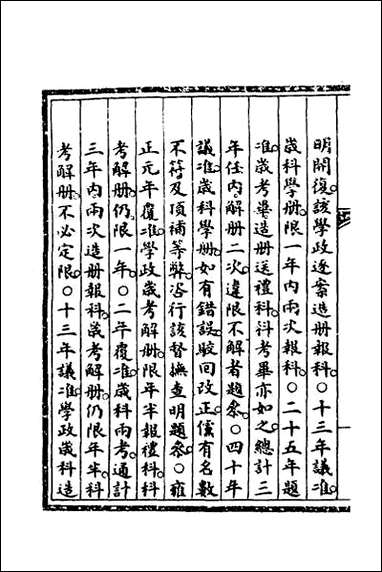 明開復。該學政逐案造册報科。○十三年議准
歲科學册。限一年內兩次報科。○二十五年題
准。歲考畢造册送禮科。科考畢亦如之。總計三
年任內解册二次。違限不解者題叅。○四十年
議准。歲科學册。如有錯誤。駁回改正。儘有名數
不符及頂補等弊。咨行該督撫查明題叅。○雍
正元年覆准。學政歲考解册。限年半報禮科。科
考解册。仍限一年。○二年覆准。歲科兩考。通計
三年內。兩次造册報科。歲考解册。仍限年半。科
考解册。不必定限。○十三年議准。學政歲科造